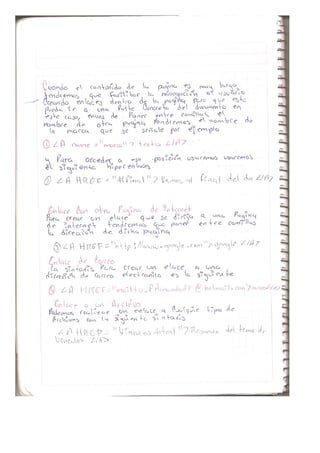 Cuando el contenido de la pagina es muy largo,
tendremos que facilitar la navegación al usuario
creando enlaces dentro de la pagina para que este
pueda ir a una Parte concreta del documento en
este caso, en vez de Poner entre comillas el
nombre de otra pagina Pondremos el nombre de
la marca que se señale por ejemplo
① <A name = "marca"> texto </A>
y Para acceder a esa posición usaremos usaremos
el siguiente hiperenlace
② <A HREF = "#final"> Vamos al final del doc </A>
Enlace Con otra Pagina de Internet
Para crear un enlace que se dirija a una Pagina
de internet tendremos que poner entre comillas
la dirección de dicha pagina
<A HREF="http://www.google.com">google </A>
Enlace de Correo
la sintaxis Para Crear un enlace a una
dirección de correo electronico es la siguiente
<A HREF="mailto: @hotmail.com">
Enlace a un Archivo
Podemos realizar un enlace a Cualquier tipo de
Archivos con la siguiente sintaxis
<A HREF= "Vinculos.html">Resumen del tema de
Vinculos </A>